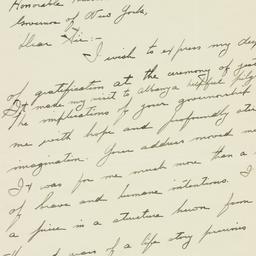 Honorable
Governor of New York,
Dear Sir:-
I wish to express my deep
of gratification at the ceremony of
It made my visit to Albany a helpful
The implications of your governorship
me with hope and profoundly
imagination. Your address moved me
It was for me much more than a
of brave and humane intentions. I
a juice in a structure hewn from
years of a life story precious